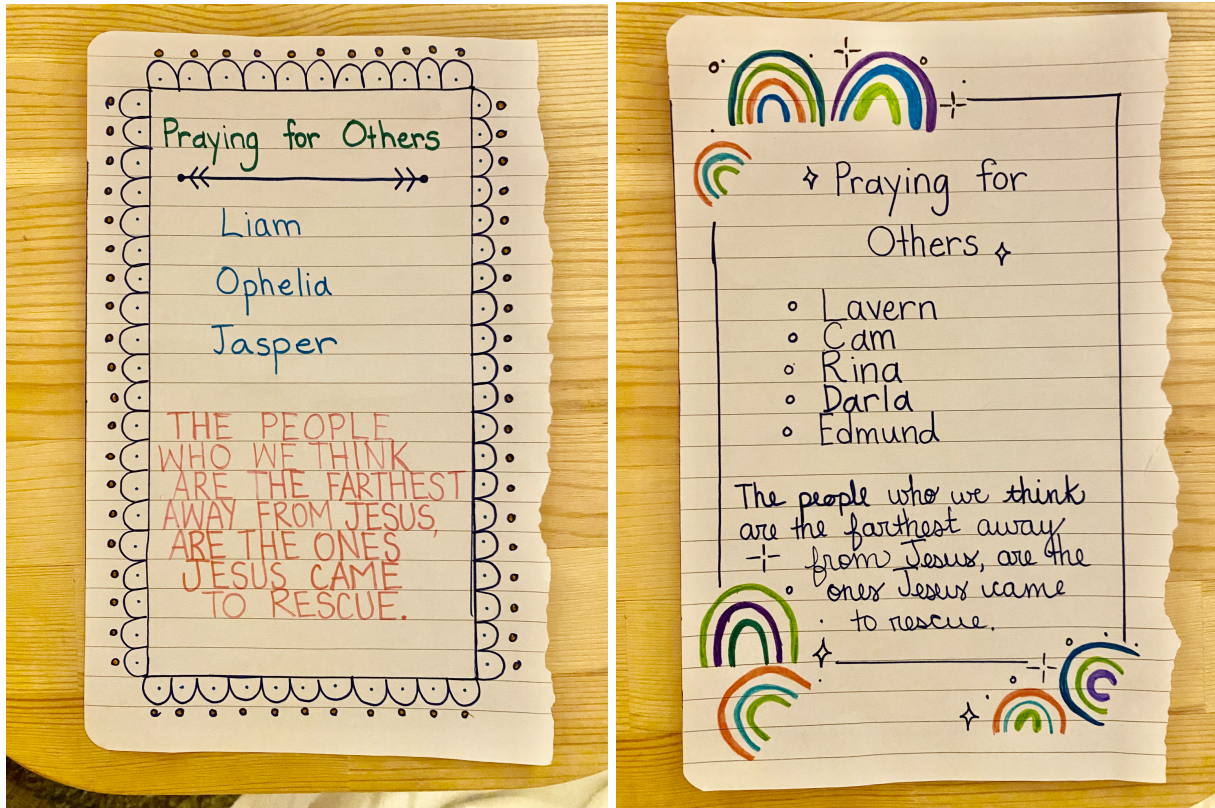 Praying for Others
Liam
Ophelia
Jasper
THE PEOPLE
WHO WE THINK
ARE THE FARTHEST
AWAY FROM JESUS,
ARE THE ONES
JESUS CAME
TO RESCUE.
Praying for
Others
Lavern
Cam
Rina
Darla
Edmund
The people who we think
are the farthest away
from Jesus, are the
ones Jesus came
to rescue.